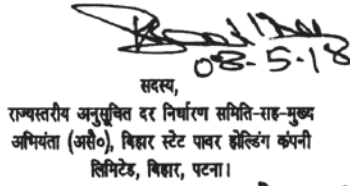 08-5-18
सदस्य,
राज्यस्तरीय अनुसूचित दर निर्धारण समिति-सह-मुख्य
अभियंता (असै०), बिहार स्टेट पावर होल्डिंग कंपनी
लिमिटेड, बिहार, पटना।